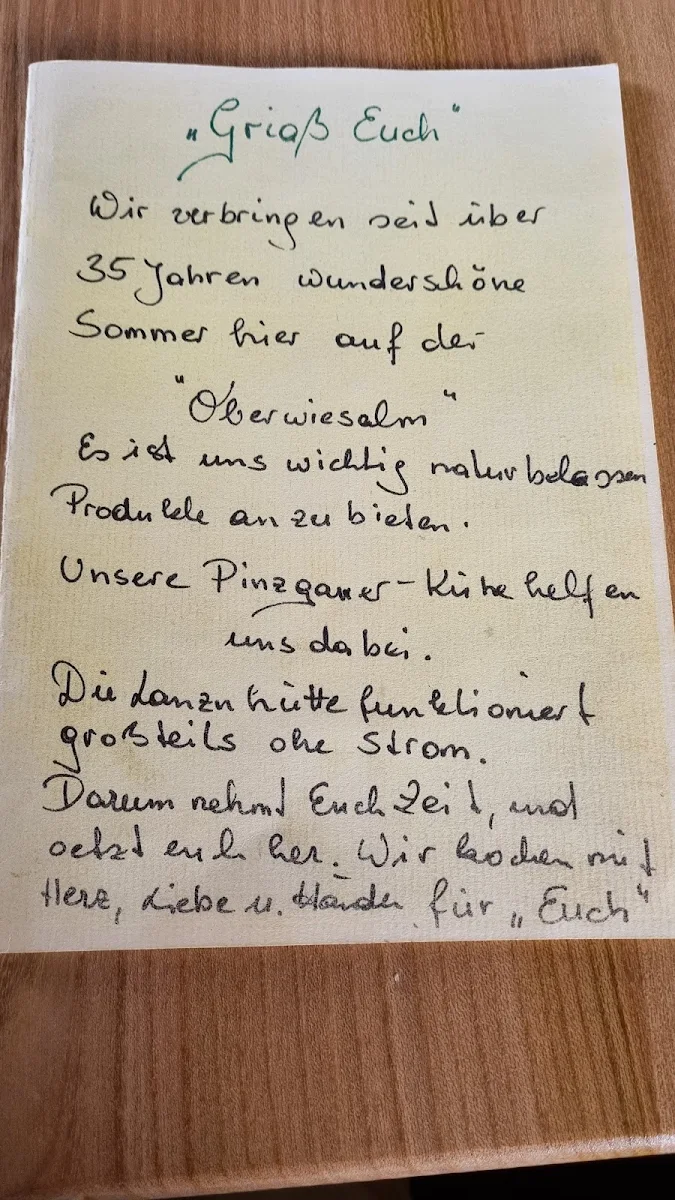 „Griaß Euch"
Wir verbringen seid über
35 Jahren wunderschöne
Sommer hier auf der
"Oberwiesalm"
Es ist uns wichtig naturbelassen
Produkte anzubieten.
Unsere Pinzgauer-Kühe helfen
uns dabei.
Die Lanznhütte funktioniert
großteils ohe Strom.
Darum nehmt Euch Zeit, und
setzt euch her. Wir kochen mit
Herz, Liebe u. Händen für „Euch"